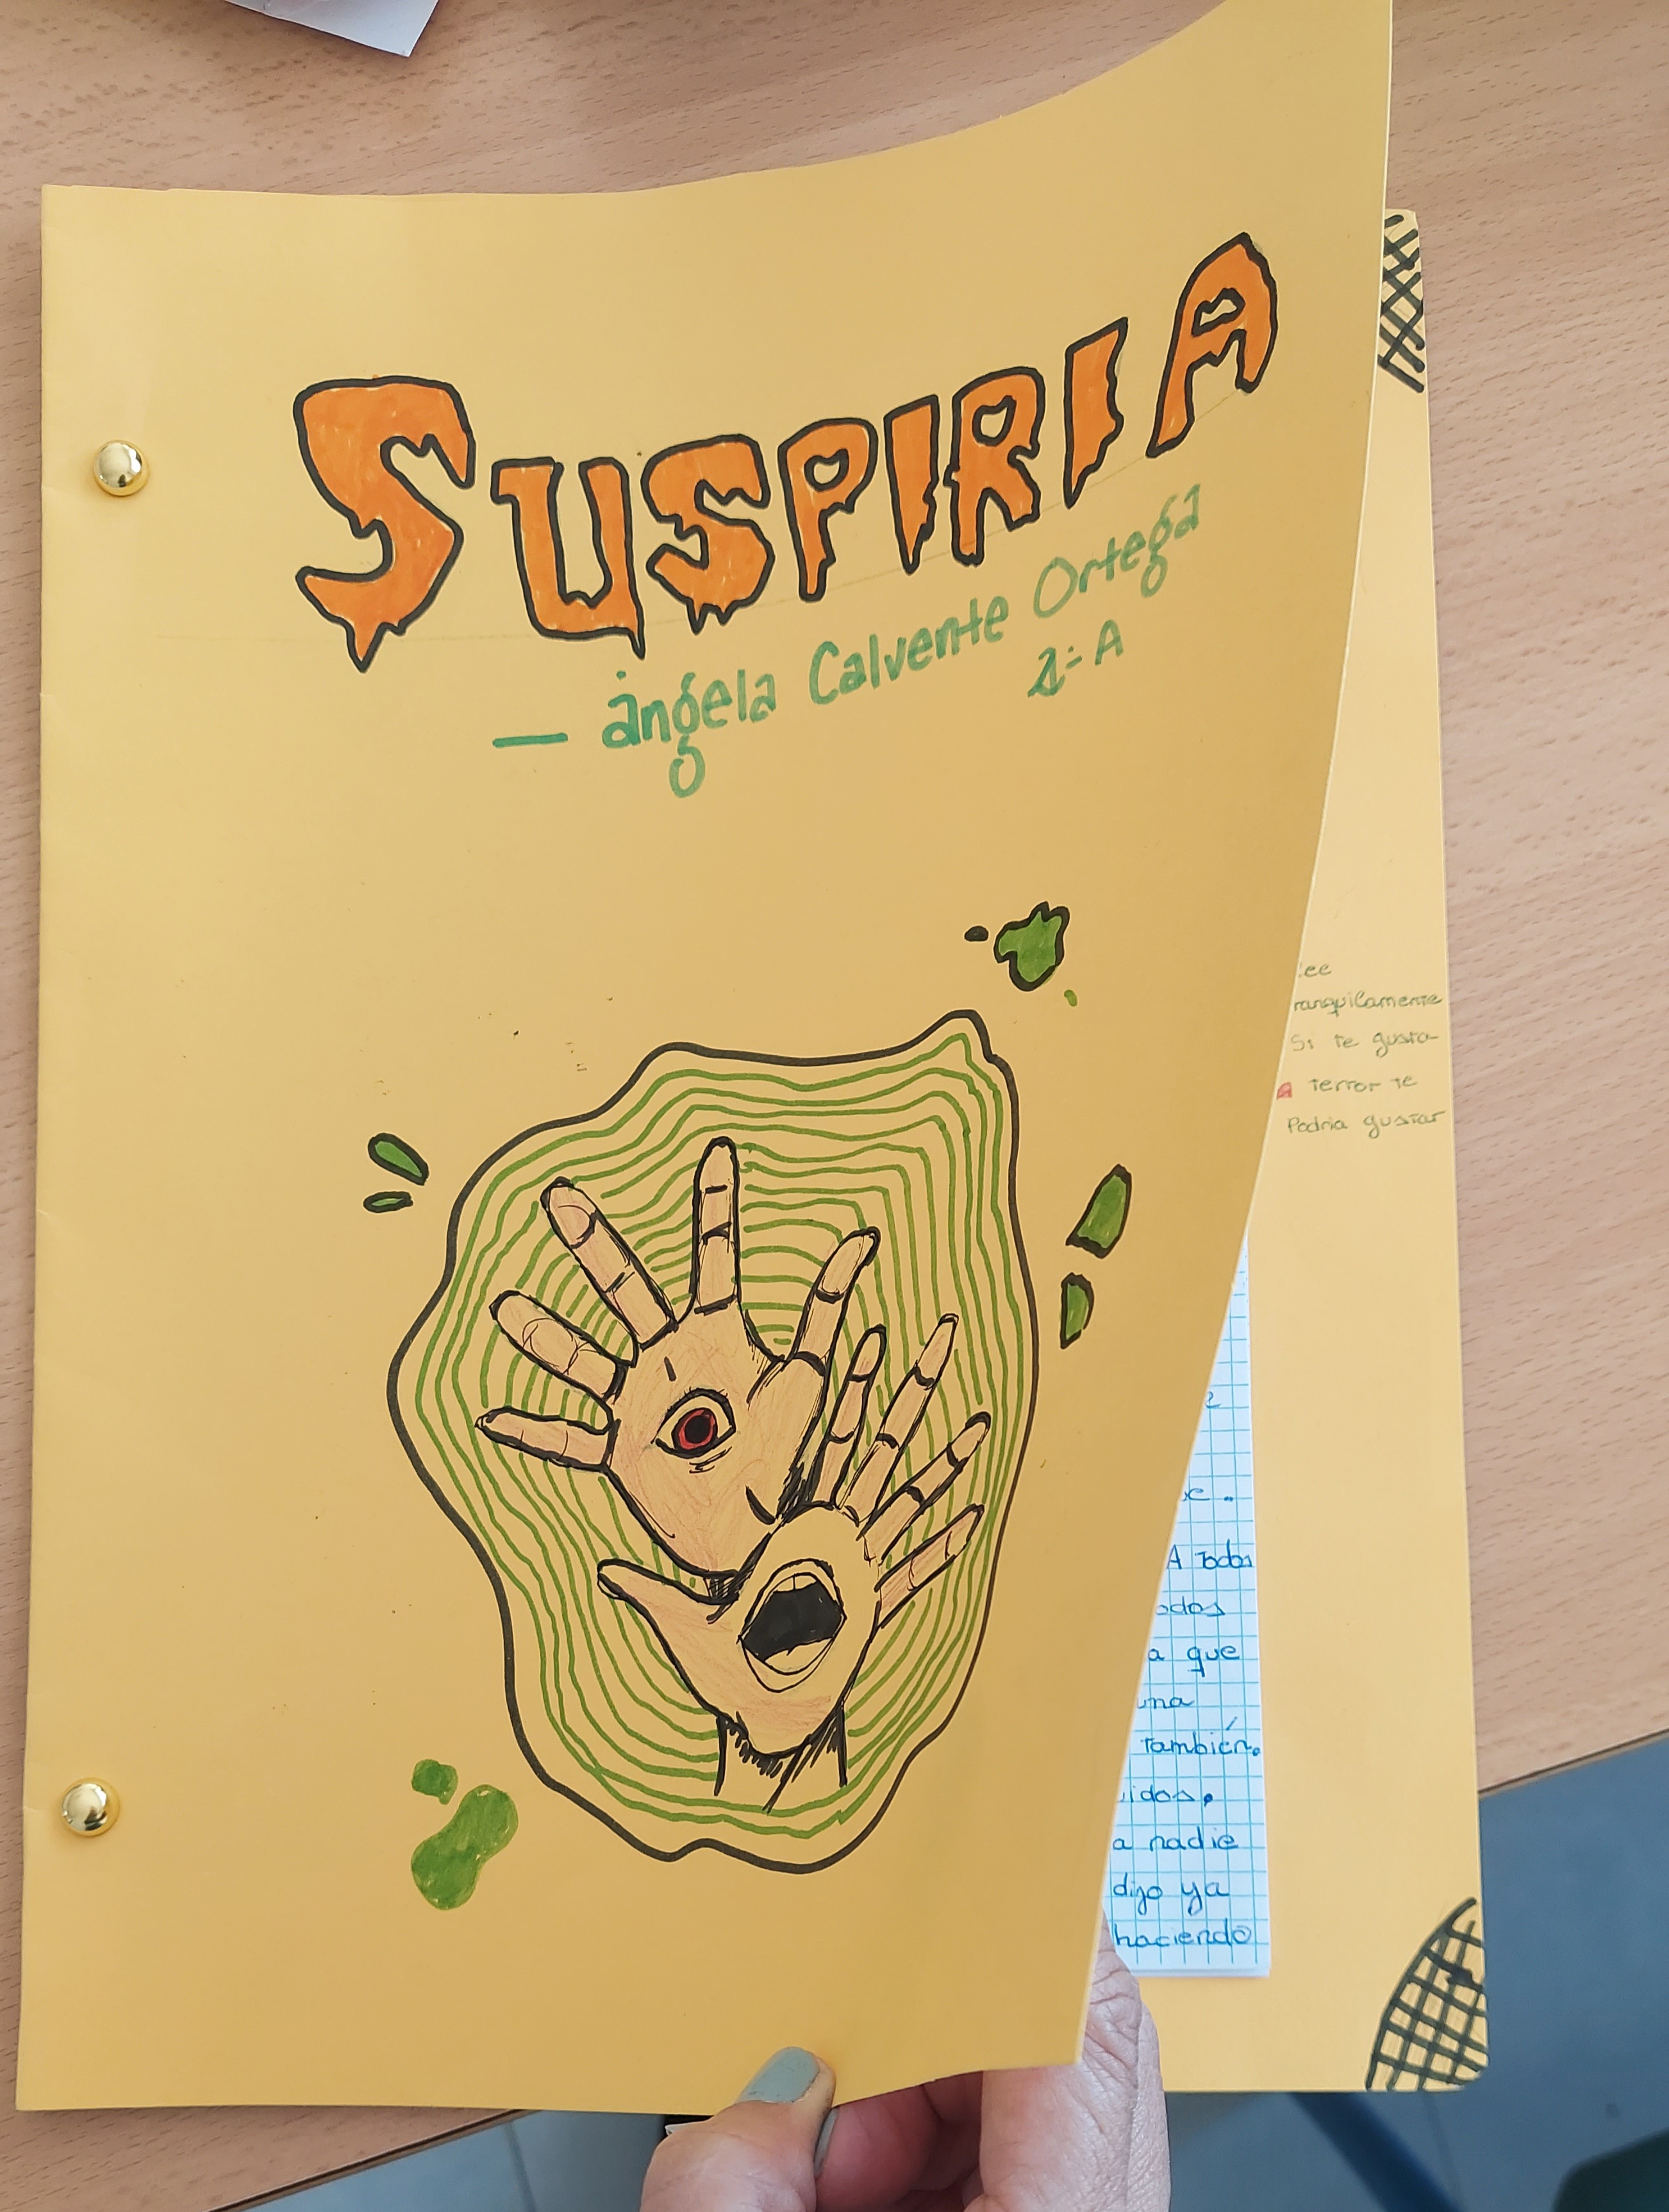 SUSPIRIA
— ángela Calvente Ortega
2º A
lee
ranquilamente
Si te gusta
terror te
Podria gustar
A todos
odos
a que
una
también.
uidos,
a nadie
dijo ya
haciendo